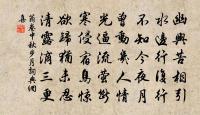 幽興苦相引
水邊行復行
不知今夜月
曾動幾人情
光逼流螢斷
寒侵宿鳥驚
欲歸猶未忍
清露滴三更
翁卷中秋步月詞典網
集